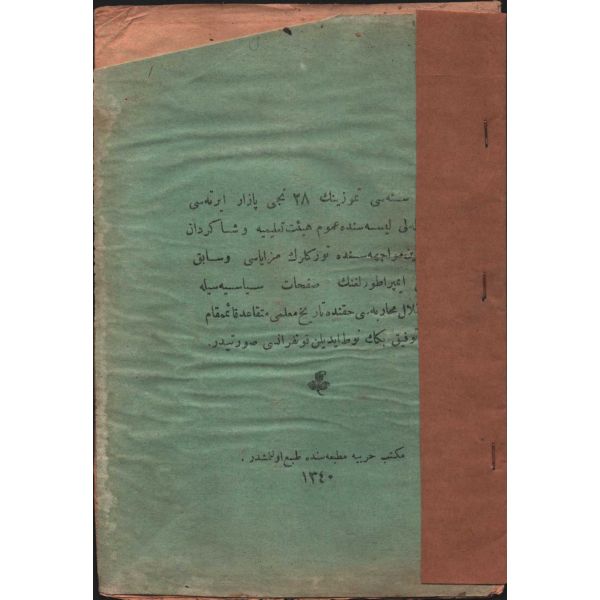 سنه‌سی تموزینك ٢٨ نجی پازار ایرته‌سی
لیسه‌سنده عموم هیئت تعلیمیه و شاكردان
مواجهه‌سنده تورکلرك مزایاسی وسابق
ایمپراطورلغنك صفحات سیاسیه‌سیله
محاربه‌سی حقنده تاریخ معلمی متقاعد قائممقام
توفیق بكك نوط ایدیلن قونفرانسی صورتیدر.
مكتب حربیه مطبعه‌سنده طبع اولنمشدر.
١٣٤٠